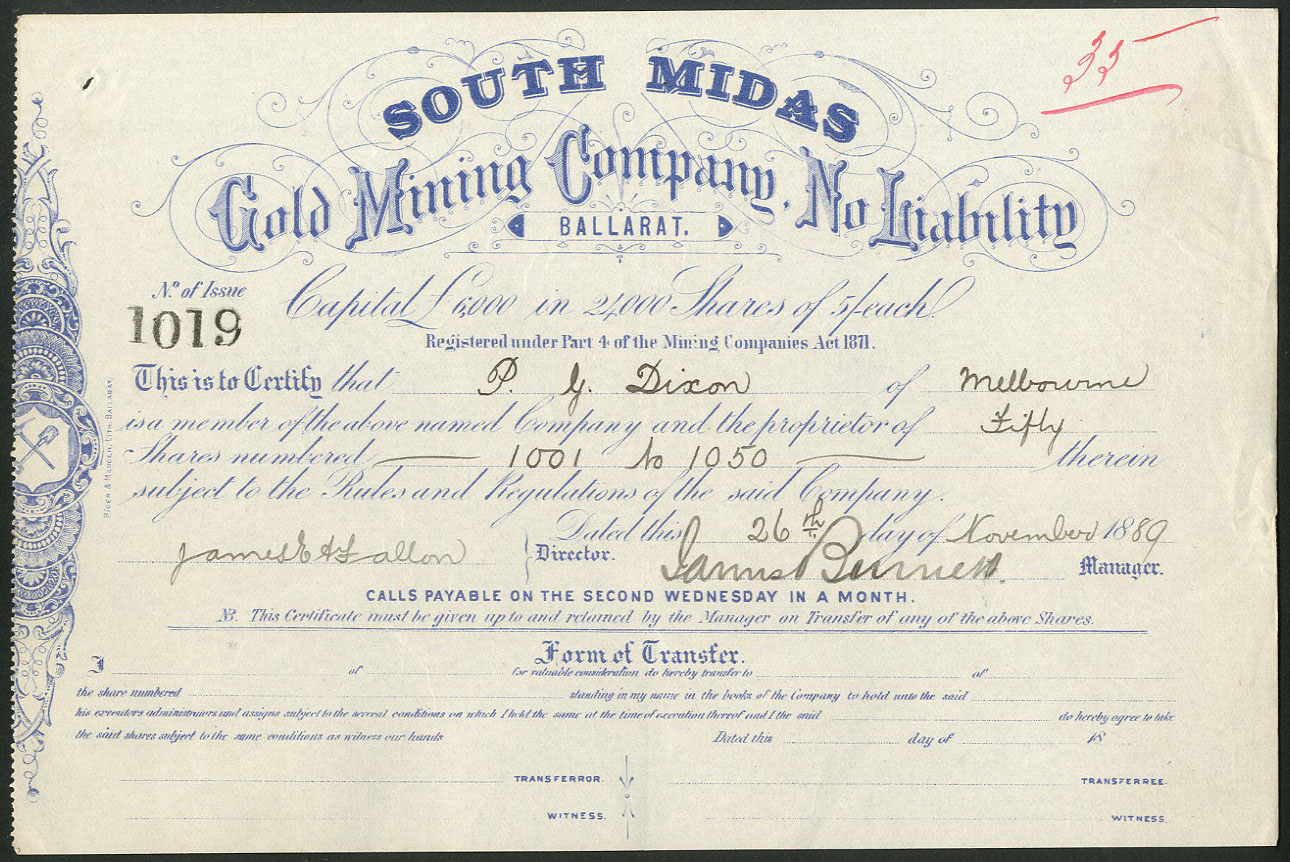 35
SOUTH MIDAS
Gold Mining Company, No Liability
BALLARAT.
No. of Issue
1019
Capital £6,000 in 24,000 Shares of 5/- each
Registered under Part 4 of the Mining Companies Act 1871.
This is to Certify that P. G. Dixon of Melbourne
is a member of the above named Company and the proprietor of Fifty
Shares numbered 1001 to 1050 therein
subject to the Rules and Regulations of the said Company.
Dated this 26th day of November 1889
James E A Fallon Director. James Burnett. Manager.
CALLS PAYABLE ON THE SECOND WEDNESDAY IN A MONTH.
NB. This Certificate must be given up to and retained by the Manager on Transfer of any of the above Shares.
Form of Transfer.
I of for valuable consideration do hereby transfer to of
the share numbered standing in my name in the books of the Company to hold unto the said
his executors administrators and assigns subject to the several conditions on which I held the same at the time of execution thereof and I the said do hereby agree to take
the said shares subject to the same conditions as witness our hands Dated this day of 18
TRANSFERROR. TRANSFERREE.
WITNESS. WITNESS.
RIDER & MERCER, LITH. BALLARAT.